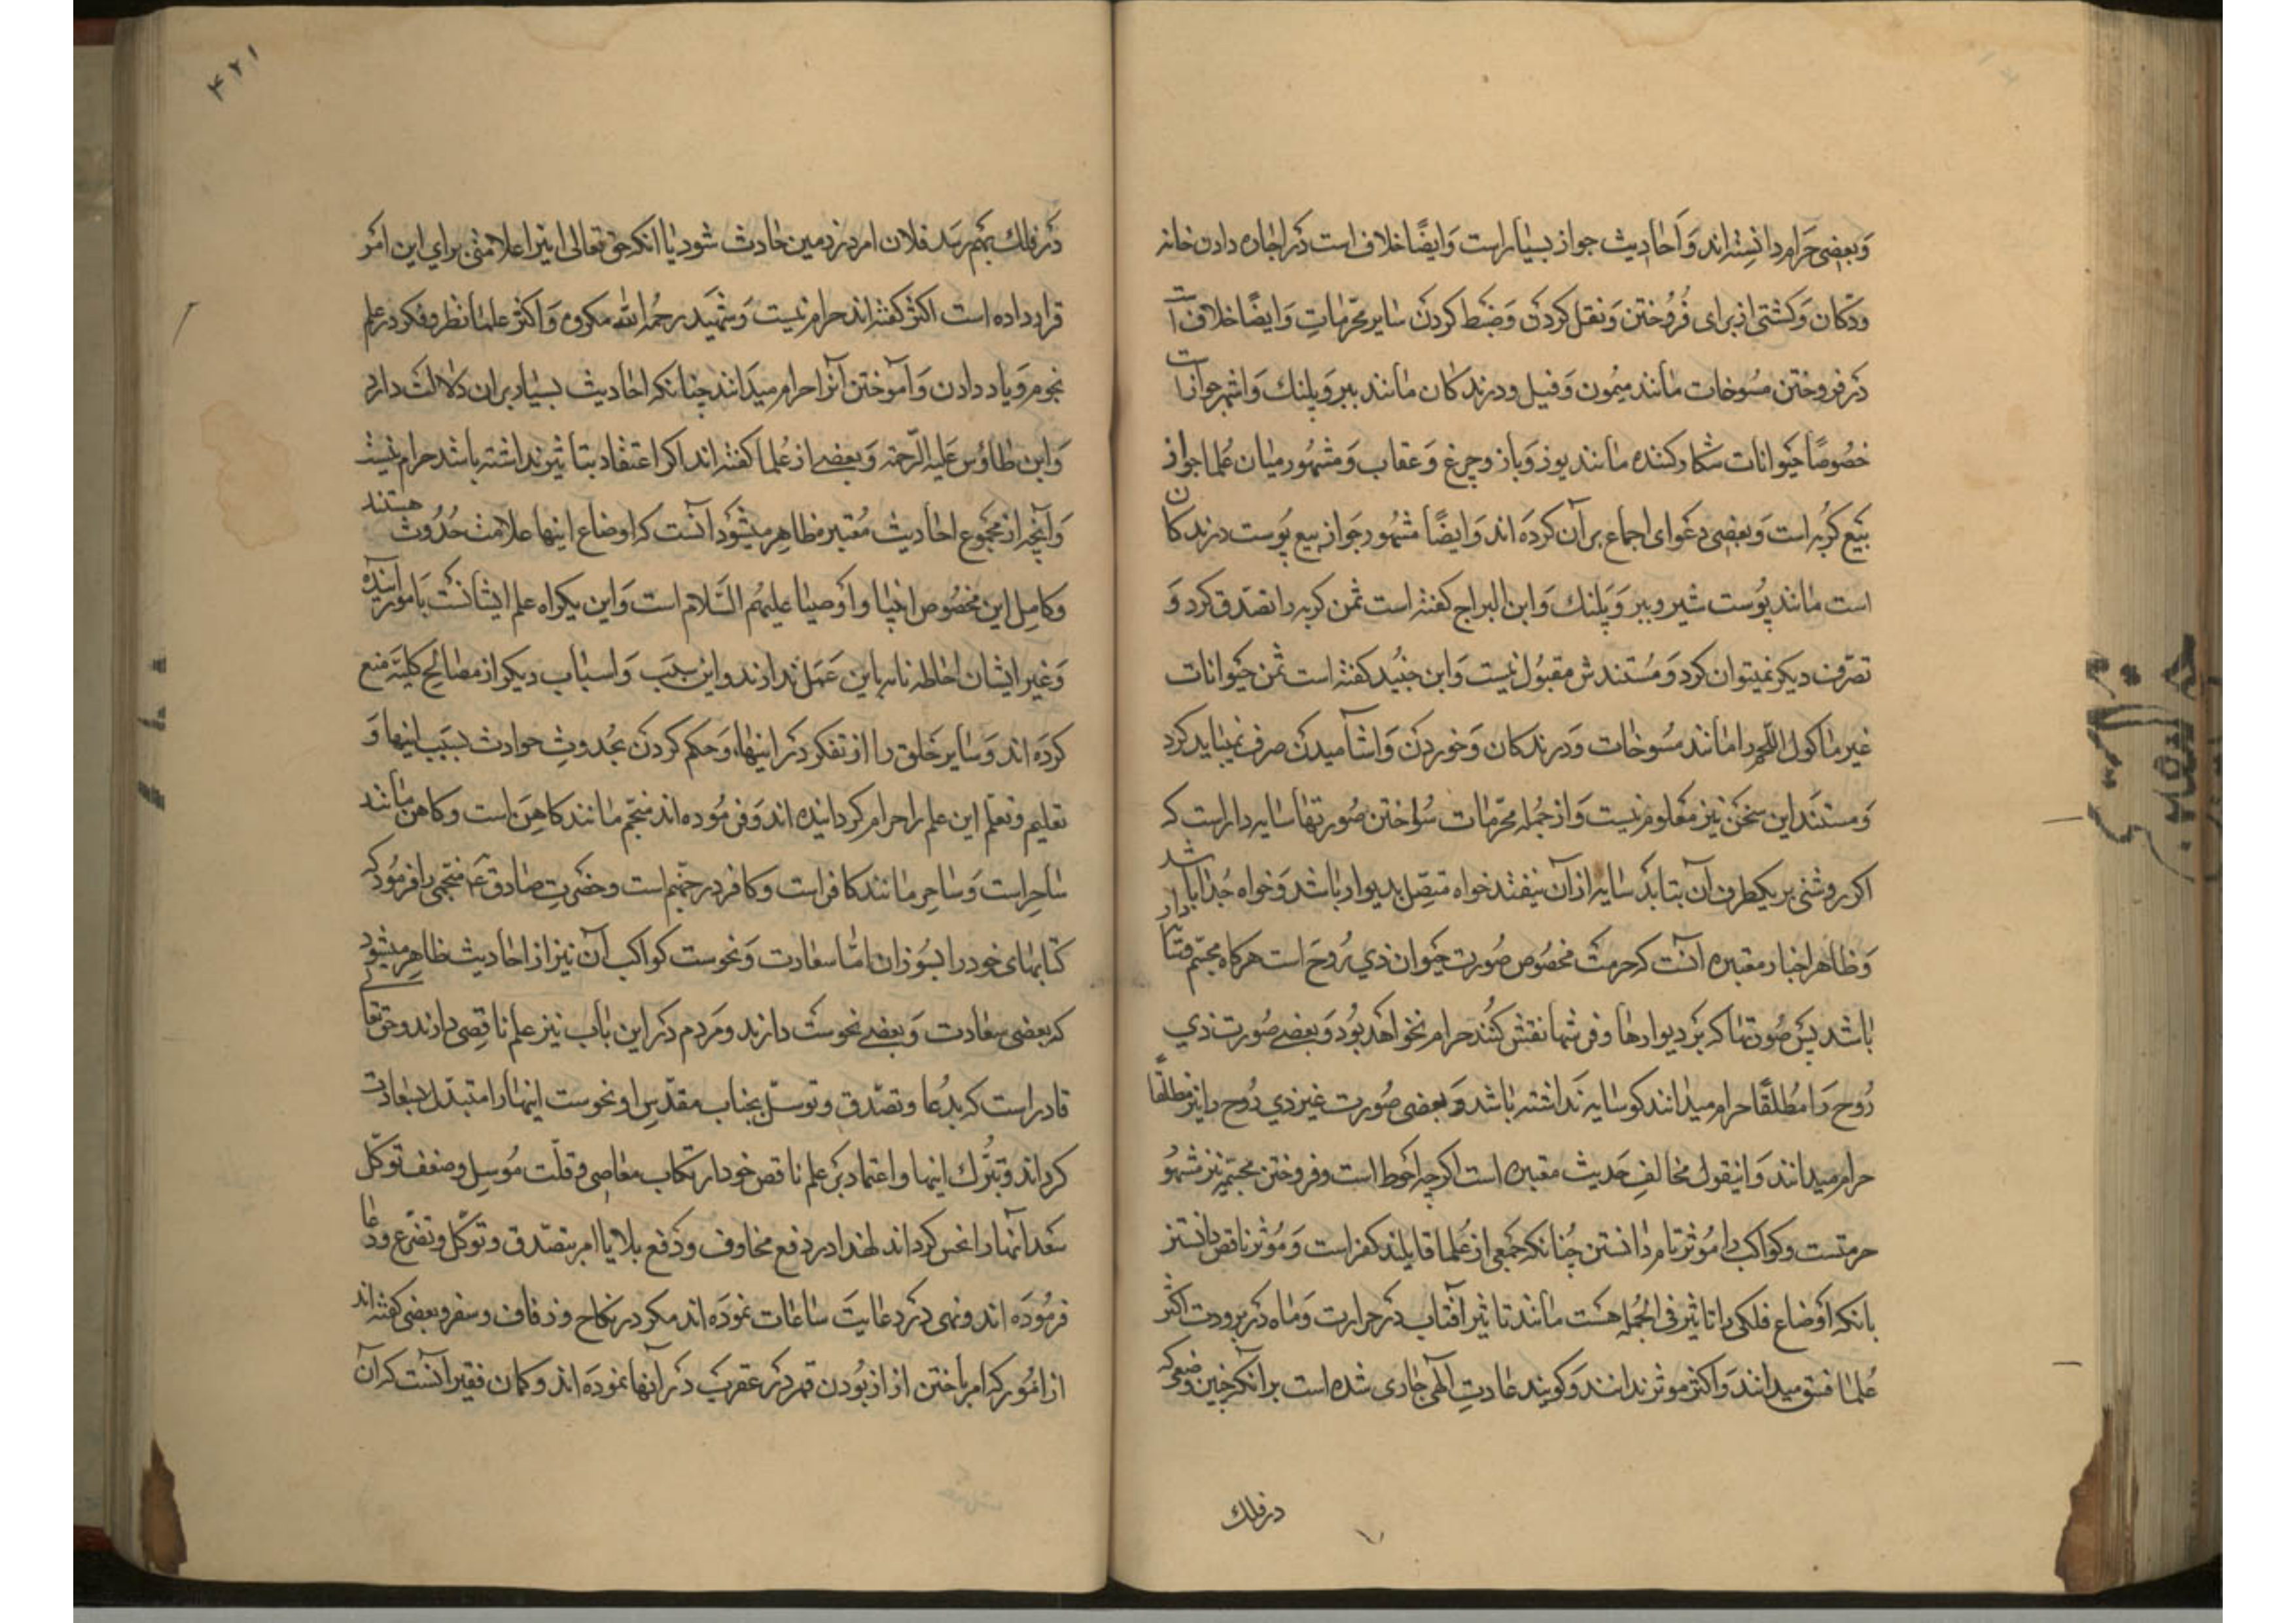 وبعضی حرام دانسته اند و احادیث جواز بسیار است و ایضا خلاف است در اجاره دادن خانه
ودکان و کشتی از برای فروختن و نقل کردن و ضبط کردن سایر محرمات و ایضا خلاف است
در فروختن مسوخات مانند میمون و فیل و درندکان مانند ببر و پلنک و اشهر جواز است
خصوصا حیوانات شکار کننده مانند یوز و باز و چرغ و عقاب و مشهور میان علما جواز
بیع کربه است و بعضی دعوای اجماع بر آن کرده اند و ایضا مشهور جواز بیع پوست درندکان
است مانند پوست شیر و ببر و پلنک و ابن البراج کفته است ثمن کربه را تصدق کرد و
تصرف دیکر نمیتوان کرد و مستندش مقبول نیست و ابن جنید کفته است ثمن حیوانات
غیر ماکول اللحم را مانند مسوخات و درندکان و خوردن و اشامیدن صرف نمیباید کرد
و مستند این سخن نیز معلوم نیست و از جمله محرمات سواختن صورتها سایه دار است که
اکر روشنی بر یکطرف آن بتابد سایه از آن بیفتد خواه متصل بدیوار باشد و خواه جدا باشد
و ظاهر اخبار معتبره آنست که حرمت مخصوص صورت حیوان ذی روح است هرکاه مجسم وسایه دار
باشد پس صورتها که بر دیوارها و فرشها نقش کنند حرام نخواهد بود و بعضی صورت ذی
روح را مطلقا حرام میدانند کو سایه نداشته باشد و بعضی صورت غیر ذی روح را نیز مطلقا
حرام میدانند و اینقول مخالف حدیث معتبره است اکرچه احوط است و فروختن مجسمه نیز مشهو
حرمتست و کواکب را موثر تام دانستن چنانکه جمعی از علما قایلند کفر است و موثر ناقص دانستن
بانکه اوضاع فلکی را تاثیر فی الجمله هست مانند تاثیر آفتاب در حرارت و ماه در برودت اکثر
علما فسق میدانند و اکثر موثر ندانند و کویند عادت الهی جاری شده است بر آنکه چنین وضعی که
در فلک
۴۲۱
در فلک بهم رسد فلان امر در زمین حادث شود یا انکه حق تعالی اینرا علامتی برای این امر
قرار داده است اکثر کفته اند حرام نیست و شهید رحمه الله مکروه و اکثر علما نظر و فکر در علم
نجوم و یاد دادن و آموختن آنرا حرام میدانند چنانکه احادیث بسیار بر ان دلالت دارد
و ابن طاوس علیه الرحمه و بعضی از علما کفته اند اکر اعتقاد بتاثیر نداشته باشد حرام نیست
و آنچه از مجموع احادیث معتبر مظاهر میشود آنست که اوضاع اینها علامت حدوث هستند
و کامل این مخصوص انبیا و اوصیا علیهم السلام است و این یکراه علم ایشانست بامور آینده
و غیر ایشان احاطه تامه باین عمل ندارند و این سبب و اسباب دیکر از مصالح کلیه منع
کرده اند و سایر خلق را از تفکر در اینها و حکم کردن بحدوث حوادث بسبب اینها و
تعلیم و تعلم این علم را حرام کردانیده اند و فرموده اند منجم مانند کاهن است و کاهن مانند
ساحر است و ساحر مانند کافر است و کافر در جهنم است و حضرت صادق ع منجمی را فرمود که
کتابهای خود را بسوزان اما سعادت و نحوست کواکب آن نیز از احادیث ظاهر میشود
که بعضی سعادت و بعضی نحوست دارند و مردم در این باب نیز علم ناقصی دارند و حق تعالی
قادر است که بدعا و تصدق و توسل بجناب مقدس او نحوست اینها را متبدل بسعادت
کرداند و بترک اینها و اعتماد بر علم ناقص خود و ارتکاب معاصی و قلت موسل و ضعف توکل
سعد انها را نحس کرداند لهذا در دفع مخاوف و دفع بلایا امر بتصدق و توکل و تضرع و دعا
فرموده اند و نهی در رعایت ساعات نموده اند مکر در نکاح و زفاف و سفر و بعضی کفته اند
از امور که امر باختن از بودن قمر در عقرب در آنها نموده اند و کمان فقیر آنست که آن